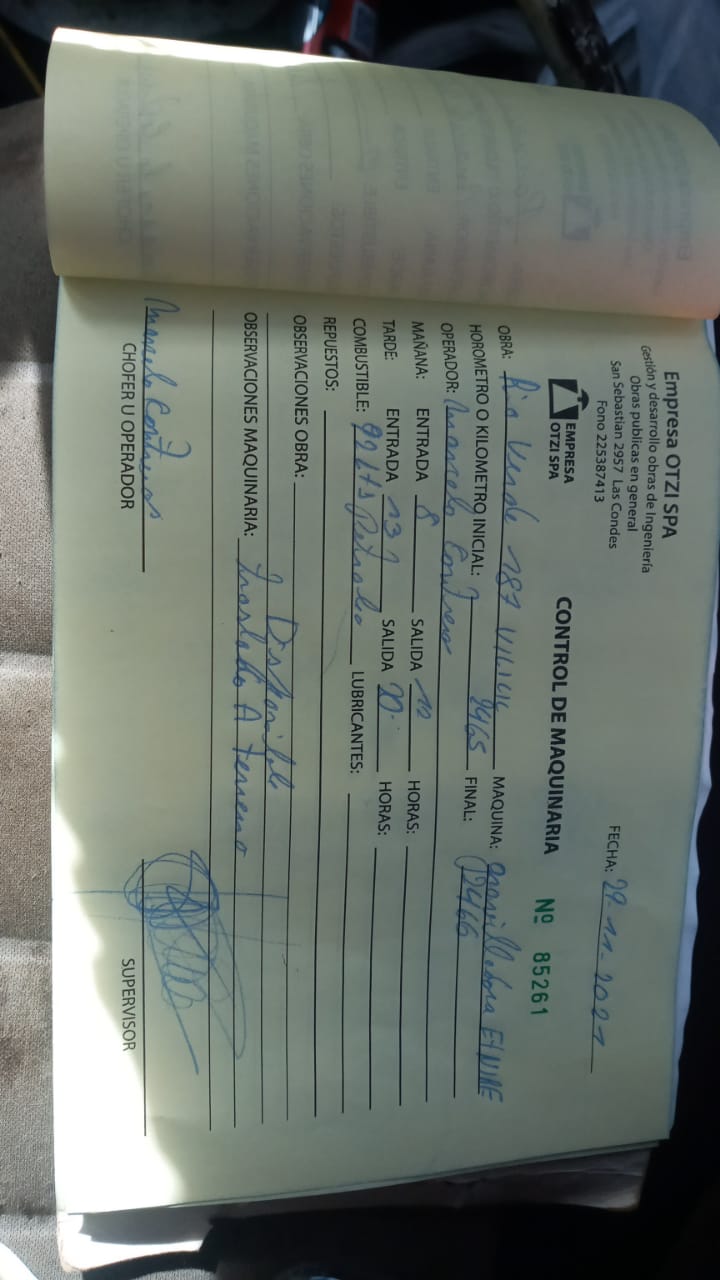 Empresa OTZI SPA
Gestión y desarrollo obras de Ingeniería
Obras publicas en general
San Sebastian 2957 Las Condes
Fono 225387413
EMPRESA
OTZI SPA
FECHA: 29-11-2021
CONTROL DE MAQUINARIA
Nº 85261
OBRA: Rio Verde 187 MAQUINA: gravilladora
HOROMETRO O KILOMETRO INICIAL: 2465 FINAL: 2466
OPERADOR: Marcelo Contreras
MAÑANA: ENTRADA 8 SALIDA 12 HORAS:
TARDE: ENTRADA 13 SALIDA 20 HORAS:
COMBUSTIBLE: 92 Lts Petroleo LUBRICANTES:
REPUESTOS:
OBSERVACIONES OBRA:
Disponible
OBSERVACIONES MAQUINARIA: Traslado A terreno
Marcelo Contreras
CHOFER U OPERADOR SUPERVISOR